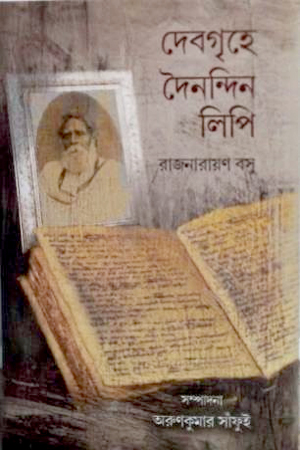 দেবগৃহে
দৈনন্দিন
লিপি
রাজনারায়ণ বসু
সম্পাদনা
অরুণকুমার সাঁফুই